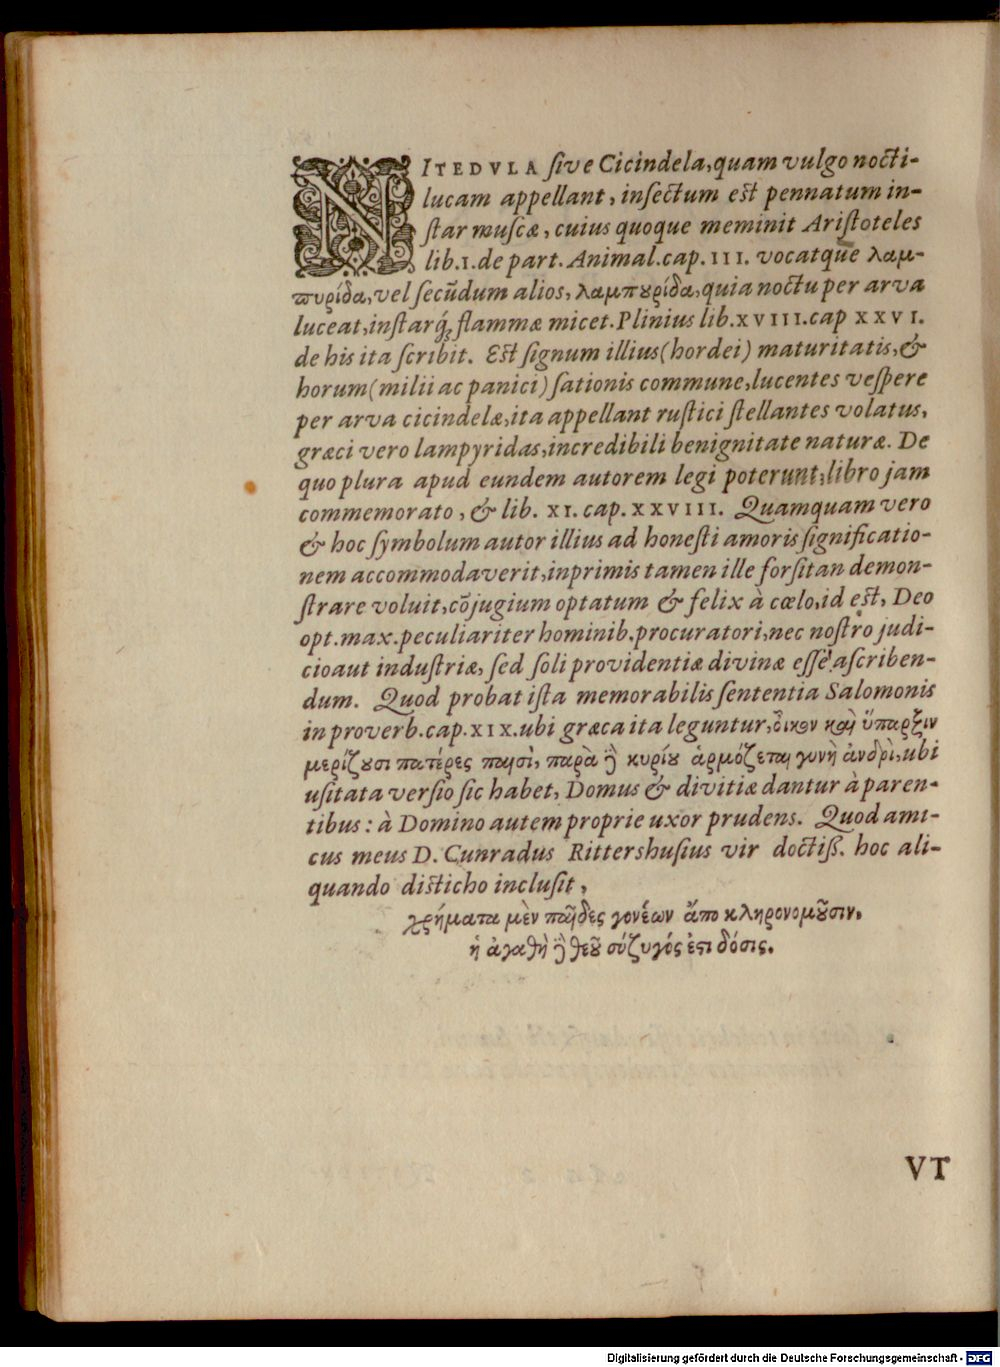 NITEDVLA ſive Cicindela, quam vulgo nocti-
lucam appellant, inſectum est pennatum in-
ſtar muſcæ, cuius quoque meminit Ariſtoteles
lib. 1. de part. Animal. cap. III. vocatque λαμ-
πυρίδα, vel ſecũdum alios, λαμπουρίδα, quia noctu per arva
luceat, inſtarq́; flammæ micet. Plinius lib. XVIII. cap XXVI.
de his ita ſcribit. Est ſignum illius (hordei) maturitatis, &
horum (milii ac panici) ſationis commune, lucentes veſpere
per arva cicindelæ, ita appellant ruſtici ſtellantes volatus,
græci vero lampyridas, incredibili benignitate naturæ. De
quo plura apud eundem autorem legi poterunt, libro jam
commemorato, & lib. XI. cap. XXVIII. Quamquam vero
& hoc ſymbolum autor illius ad honeſti amoris ſignificatio-
nem accommodaverit, inprimis tamen ille forſitan demon-
ſtrare voluit, cōjugium optatum & felix à cœlo, id est, Deo
opt. max. peculiariter hominib. procuratori, nec noſtro judi-
cio aut induſtriæ, ſed ſoli providentiæ divinæ eſſe aſcriben-
dum. Quod probat iſta memorabilis ſententia Salomonis
in proverb. cap. XIX. ubi græca ita leguntur, οἶκον καὶ ὕπαρξιν
μερίζουσι πατέρες παισὶ, παρὰ δὲ κυρίου ἁρμόζεται γυνὴ ἀνδρὶ, ubi
uſitata verſio ſic habet, Domus & divitiæ dantur à paren-
tibus: à Domino autem proprie uxor prudens. Quod ami-
cus meus D. Cunradus Rittershuſius vir doctiß. hoc ali-
quando disticho incluſit,
χρήματα μὲν παῖδες γονέων ἄπο κληρονομοῦσιν.
ἡ ἀγαθὴ δὲ θεοῦ σύζυγός ἐστι δόσις.
VT
Digitalisierung gefördert durch die Deutsche Forschungsgemeinschaft - DFG